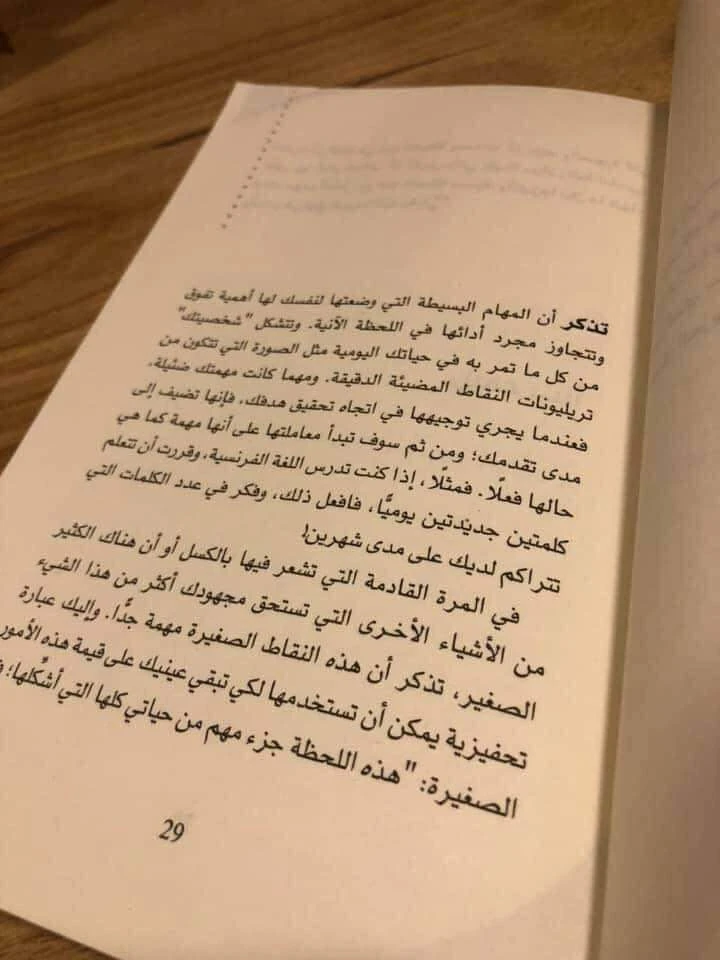 تذكر أن المهام البسيطة التي وضعتها لنفسك لها أهمية تفوق
وتتجاوز مجرد أدائها في اللحظة الآنية. وتتشكل "شخصيتك"
من كل ما تمر به في حياتك اليومية مثل الصورة التي تتكون من
تريليونات النقاط المضيئة الدقيقة. ومهما كانت مهمتك ضئيلة،
فعندما يجري توجيهها في اتجاه تحقيق هدفك، فإنها تضيف إلى
مدى تقدمك؛ ومن ثم سوف تبدأ معاملتها على أنها مهمة كما هي
حالها فعلًا. فمثلًا، إذا كنت تدرس اللغة الفرنسية، وقررت أن تتعلم
كلمتين جديدتين يوميًّا، فافعل ذلك، وفكر في عدد الكلمات التي
تتراكم لديك على مدى شهرين!
في المرة القادمة التي تشعر فيها بالكسل أو أن هناك الكثير
من الأشياء الأخرى التي تستحق مجهودك أكثر من هذا الشيء
الصغير، تذكر أن هذه النقاط الصغيرة مهمة جدًّا. وإليك عبارة
تحفيزية يمكن أن تستخدمها لكي تبقي عينيك على قيمة هذه الأمور
الصغيرة: "هذه اللحظة جزء مهم من حياتي كلها التي أشكِّلها؛
29